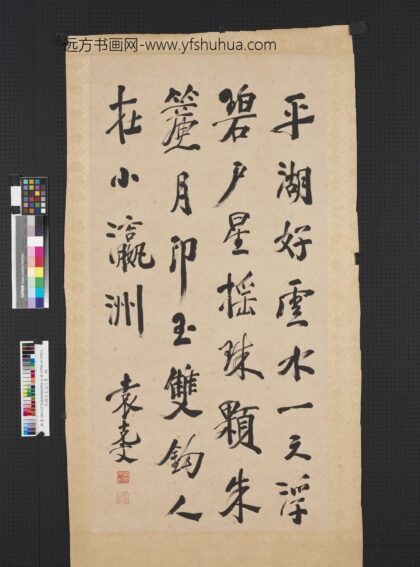 远方书画网-www.yfshuhua.com
平湖好雲水一天浮
碧户星搖珠顆朱
簾月印玉雙鈎人
在小瀛洲
袁克文